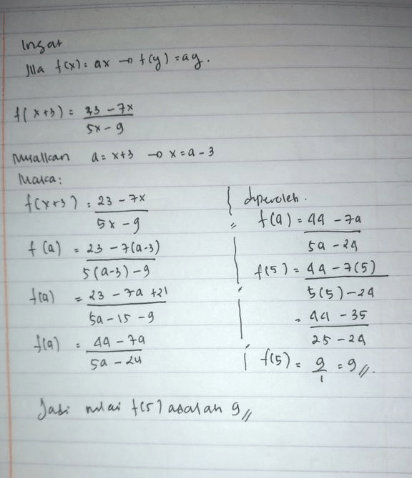 Ingat
Jika f(x) = ax → f(y) = ay.
f(x+3) = 23 - 7x / 5x - 9
Misalkan a = x+3 → x = a - 3
Maka:
f(x+3) = 23 - 7x / 5x - 9
f(a) = 23 - 7(a-3) / 5(a-3) - 9
f(a) = 23 - 7a + 21 / 5a - 15 - 9
f(a) = 44 - 7a / 5a - 24
diperoleh.
f(a) = 44 - 7a / 5a - 24
f(5) = 44 - 7(5) / 5(5) - 24
= 44 - 35 / 25 - 24
f(5) = 9 / 1 = 9 //.
Jadi nilai f(5) adalah 9 //